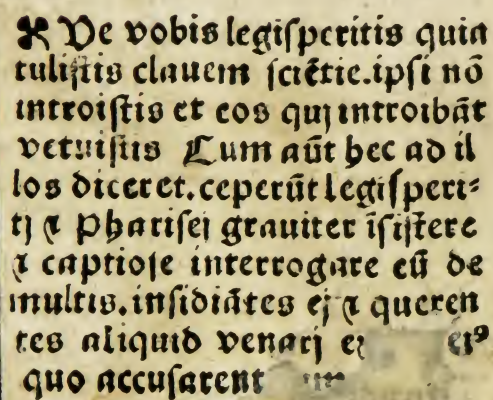 ✠ Ve vobis legiſperitis quia
tuliſtis clauem ſciētie.ipſi nō
introiſtis et eos qui introibāt
vetuiſtis Cum aūt hec ad il
los diceret.ceperūt legiſperi⸗
ti ⁊ Phariſei grauiter īſiſtere
⁊ captioſe interrogare eū de
multis.inſidiātes ei ⁊ queren
tes aliquid venari eiꝰ
quo accuſarent